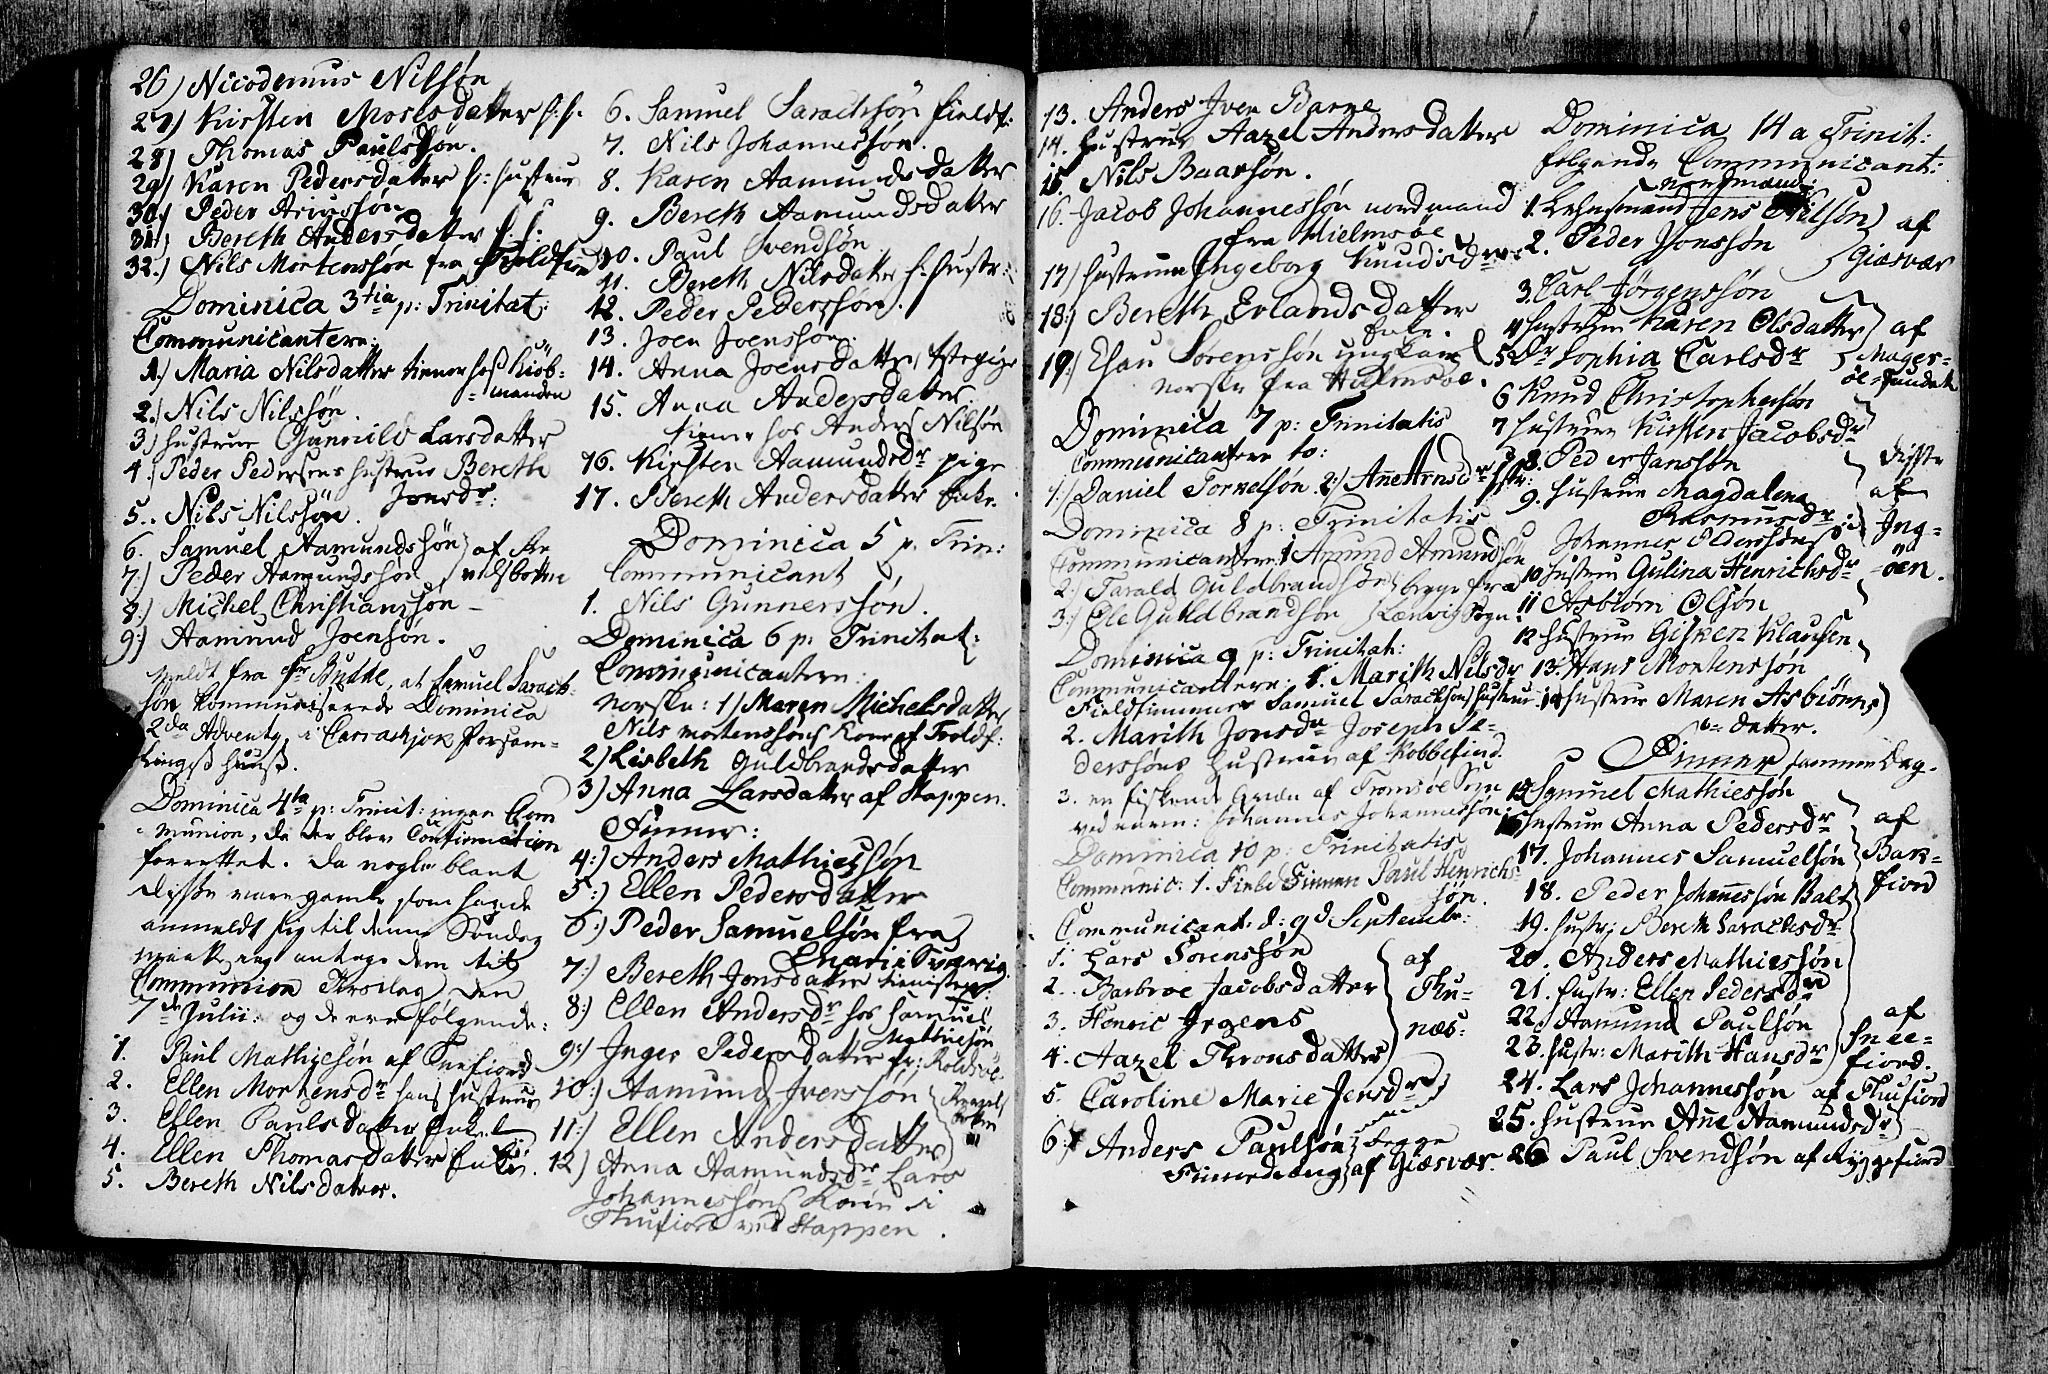 26) Nicodemus Nilsøn
27) Kirsten Mosesdatter h: h.
28) Thomas Paulssøn.
29) Karen Pedersdatter h: hustrue
30) Peder Ariussøn
31) Bereth Andersdatter h. h.
32.) Nils Mortenssøn fra
Dominica 3tia p: Trinitat:
Communicantere:
1.) Maria Nilsdatter tiener hoß Kiöb-
=manden
2.) Nils Nilssøn.
3) hustrue Gunnild Larsdatter
4.) Peder Pedersens hustrue Bereth
Jonsdr:
5.. Nils Nilssøn.
6. Samuel Aamundssøn af
7.) Peder Aamundssøn
8.) Michel Christianssøn
9.) Aamund Joensøn.
meldt fra Hr Buthe, at Samuel Sarach-
søn kommuniserede Dominica
2da Advent i Carrasjok forsam-
lings huuß.
Dominica 4ta p: Trinit: ingen Com
munion, da der blev Confirmation
forrettet. Da nogle blant
disse vare gamle som havde
anmeldt sig til denne Søndag
maatte jeg antage dem til
Communion Tirsdag den
7de Julii. og de ere følgende:
1. Paul Mathiesøn af
2. Ellen Mortensdr hans hustrue
3. Ellen Paulsdatter Enke
4. Ellen Thomasdatter Enke.
5. Bereth Nilsdatter.
6. Samuel Sarachsøn fieldf:
7. Nils Johannessøn.
8. Karen Aamundsdatter
9. Bereth Aamundsdatter
10. Paul Svendsøn
11. Bereth Nilsdatter h: hustr:
12. Peder Pederssøn.
13. Joen Joenssøn.
14. Anna Joensdatter
15. Anna Andersdatter.
tiener hos Anders Nilsøn
16. Kirsten Aamundsdr pige
17. Bereth Andersdatter Enke.
Dominica 5 p. Trin:
Communicant
1. Nils Gunnerssøn.
Dominica 6 p: Trinitat:
Communicantere:
norske: 1) Maren Michelsdatter
Nils Mortenssøns Kone af Troldf:
2) Lisbeth Guldbrandsdatter
3) Anna Larsdatter af Stappen.
Finner:
4:) Anders Mathiessøn
5:) Ellen Pedersdatter
6:) Peder Samuelsøn fra
7:) Bereth Jonsdatter
8:) Ellen Andersdr hos Samuel
Mathiesøn
9:) Inger Pedersdatter
10:) Aamund Iverssøn
11:) Ellen Andersdatter
12) Anna Aamundsdr Lars
Johannessøns Kone i
Thufiord ved Stappen.
13. Anders Iver Barne
14. hustrue Aazel Andersdatter
15. Nils Baarsøn.
16. Jacob Johannessøn nordmand
fra Hielmsøe
17) hustrue Ingeborg Knudsdr
18:) Bereth Erlandsdatter
Enke.
19:) Esau Sørenssøn ungkarl
norske fra Hielmsøe.
Dominica 7 p: Trinitatis
Communicantere to:
1:) Daniel Tornelsøn. 2:) Ane Arnsdr
Dominica 8 p: Trinitatis
Communicantere: 1 Amund Amundsøn
2.) Tarald Guldbrandsøn begge fra
3:) Ole Guldbrandsøn Lænvigs Sogn.
Dominica 9 p: Trinitat:
Communicantere: 1. Marith Nilsdr
Fieldfinner Samuel Sarachsøns hustrue
2. Marith Jonsdr Joseph Pe-
derssøns hustrue af Kobbefiord.
3. en fiskende Qvæn af Tromsøe Sogn
ved navn: Johannes Johannessøn.
Dominica 10 p: Trinitatis
Communic: 1. Finnen Paul Henrich-
søn.
Communicant. d: 9d Septembr:
1. Lars Sørenssøn
2. Barbroe Jacobsdatter
3. Henric Irgens
4. Aazel Thronsdatter
af
Thu-
næs:
5. Caroline Marie Jensdr
6. Anders Paulsøn begge
Finnedreng af Giæsvær.
Dominica 14 a Trinit:
følgende Communicant:
nordmænd
1. Lehnsmand Jens Nilsøn af
2. Peder Jonssøn Giæsvær
3. Carl Jörgenssøn
4 hustrue Karen Olsdatter af
5 Dr Sophia Carlsdr Mager-
öe=Sundet
6 Knud Christophersøn
7 hustrue Kirsten Jacobsdr
8. Peder Janssøn
9. hustrue Magdalena
Rasmusdr
Johannes Pederssøns
10 hustrue Gulina Henrichsdr
11 Asbiørn Olsøn
12 hustrue Gisken Klausen
disse
af
Ing-
öen.
13. Hans Mortenssøn
14 hustrue Maren Asbiørns
= datter.
Finner samme Dag.
15 Samuel Mathiessøn
16 hustrue Anna Pedersdr
17. Johannes Samuelsøn
18. Peder Johannessøn Balt
19. hustr: Bereth Sarachsdr
af
Bak-
fiord
20. Anders Mathiessøn
21. hustr: Ellen Pedersdr
22. Aamund Paulsøn
23. hustr: Marith Hansdr
af
Snee-
fiord.
24. Lars Johannessøn af Thufiord
25. hustrue Ane Aamundsdr
26 Paul Svendsøn af Ryggefiord